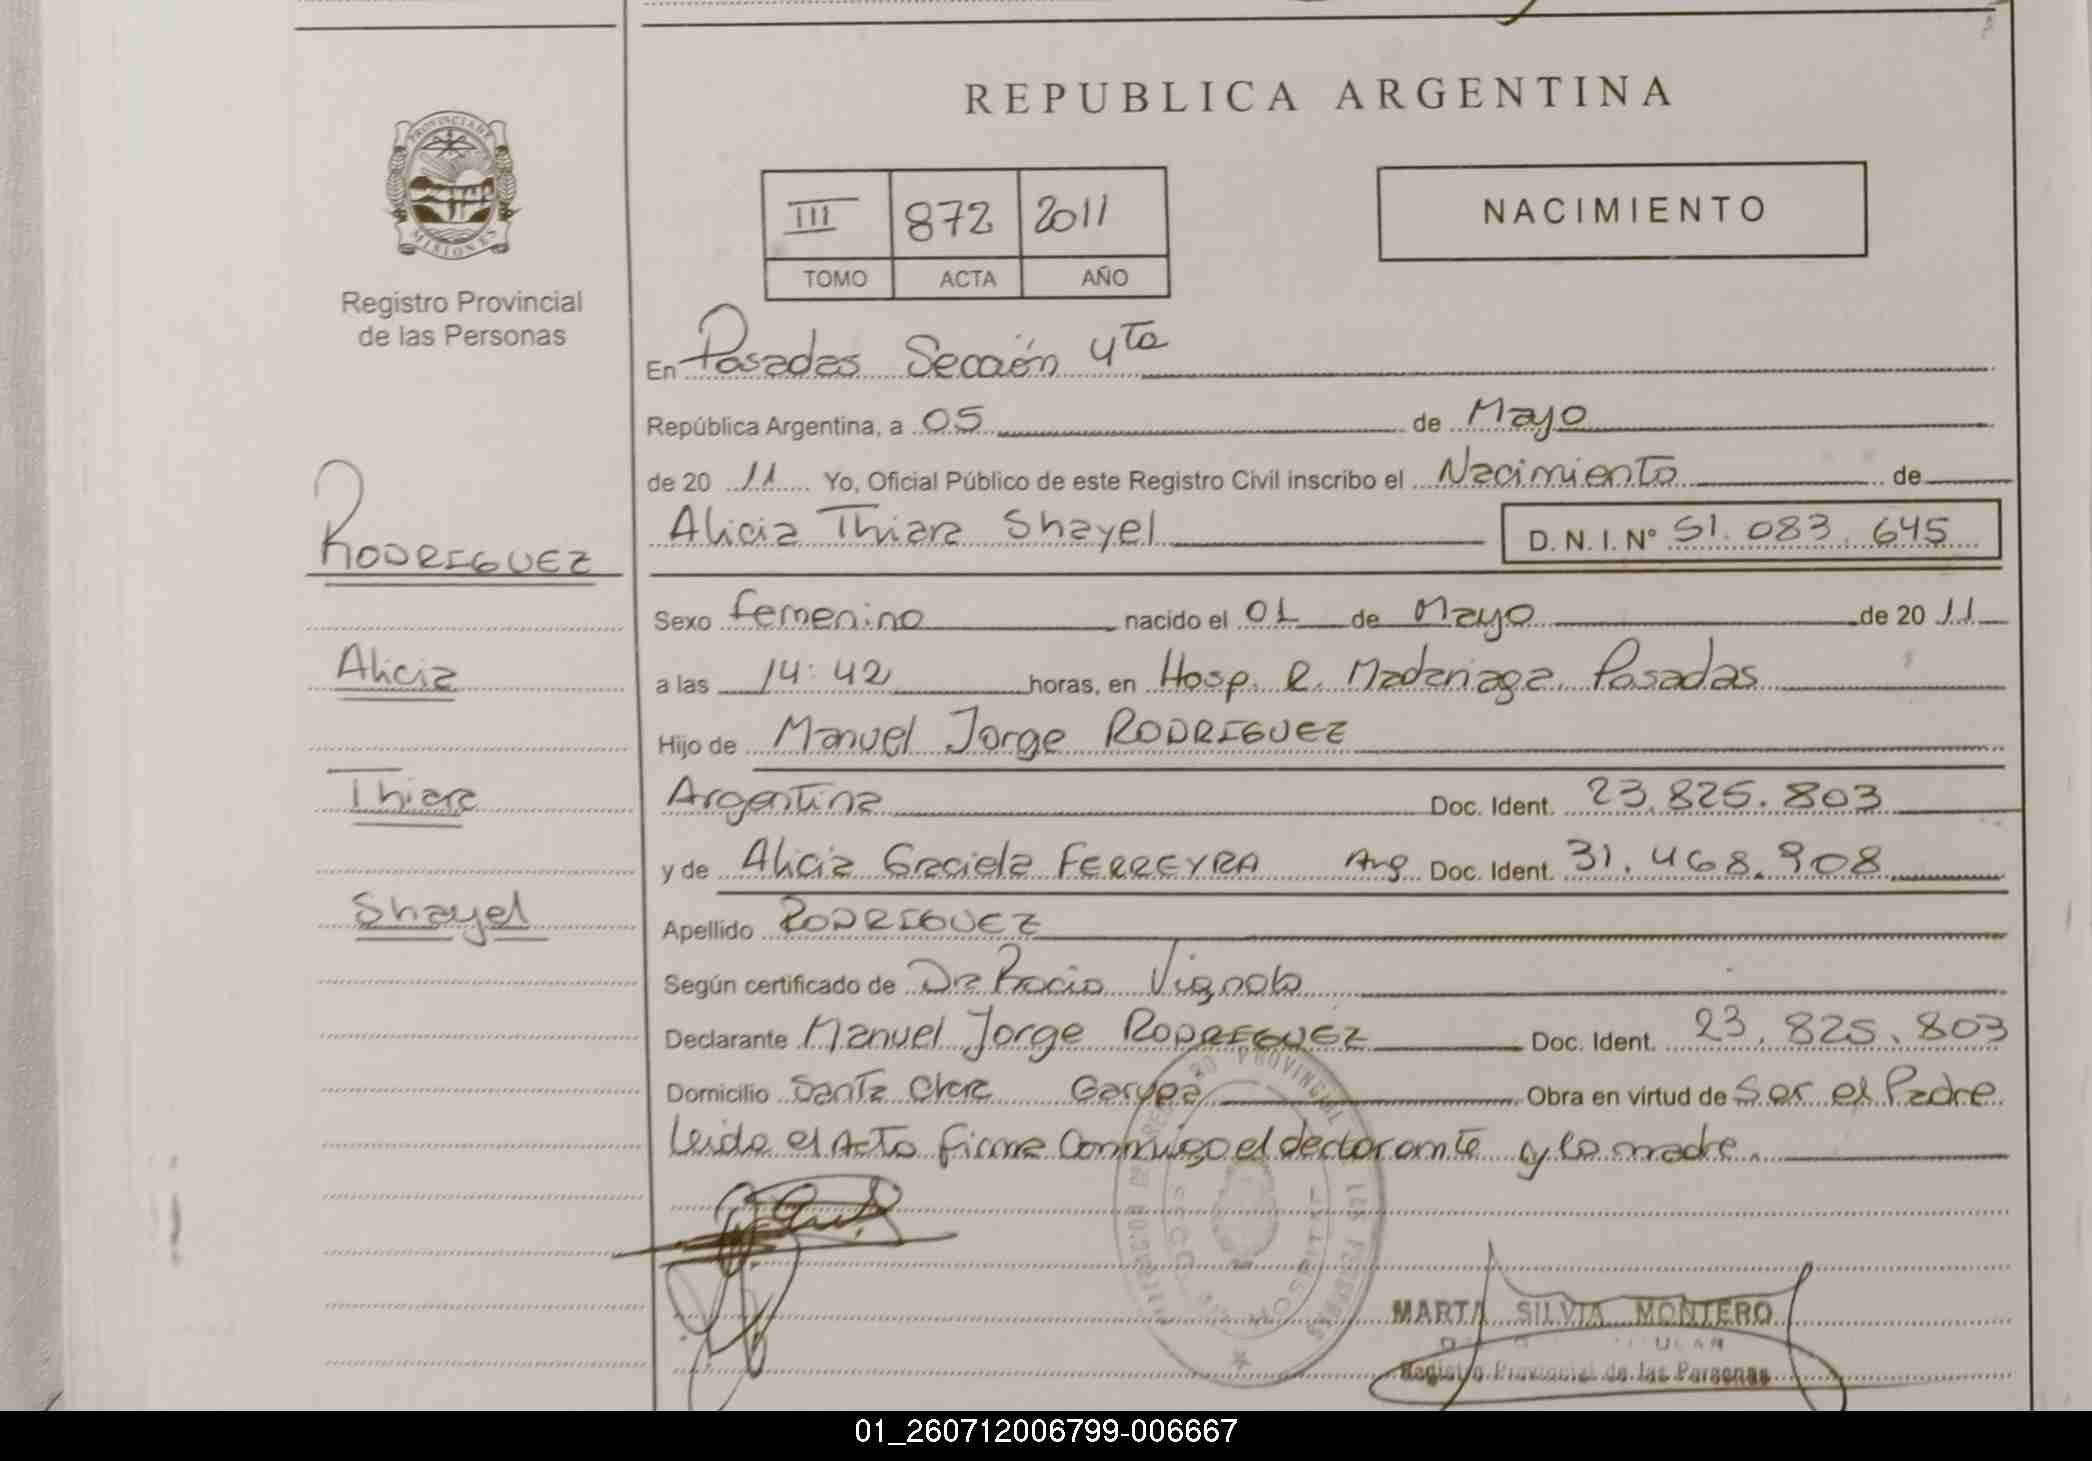 REPUBLICA ARGENTINA
PROVINCIA DE
MISIONES
Registro Provincial
de las Personas
III 872 2011
TOMO ACTA AÑO
NACIMIENTO
En Posadas Sección 4ta
República Argentina, a 05 de Mayo
de 20 11 Yo, Oficial Público de este Registro Civil inscribo el Nacimiento de
Alicia Thiara Shayel D. N. I. Nº 51. 083. 645
RODRIGUEZ
Alicia
Thiara
Shayel
Sexo femenino nacido el 01 de Mayo de 20 11
a las 14:42 horas, en Hosp. R. Madariaga Posadas
Hijo de Manuel Jorge RODRIGUEZ
Argentina Doc. Ident. 23.825.803
y de Alicia Graciela FERREYRA Arg Doc. Ident. 31.468.908
Apellido RODRIGUEZ
Según certificado de Dra Rocio Vignola
Declarante Manuel Jorge RODRIGUEZ Doc. Ident. 23.825.803
Domicilio Santa Clara Garupa Obra en virtud de Ser el Padre
Leida el Acta firma Conmigo el declarante y la madre.
PROVINCIAL
LAS PERSONAS
HOSPITAL
MARTA SILVIA MONTERO
Registro Provincial de las Personas
01_260712006799-006667